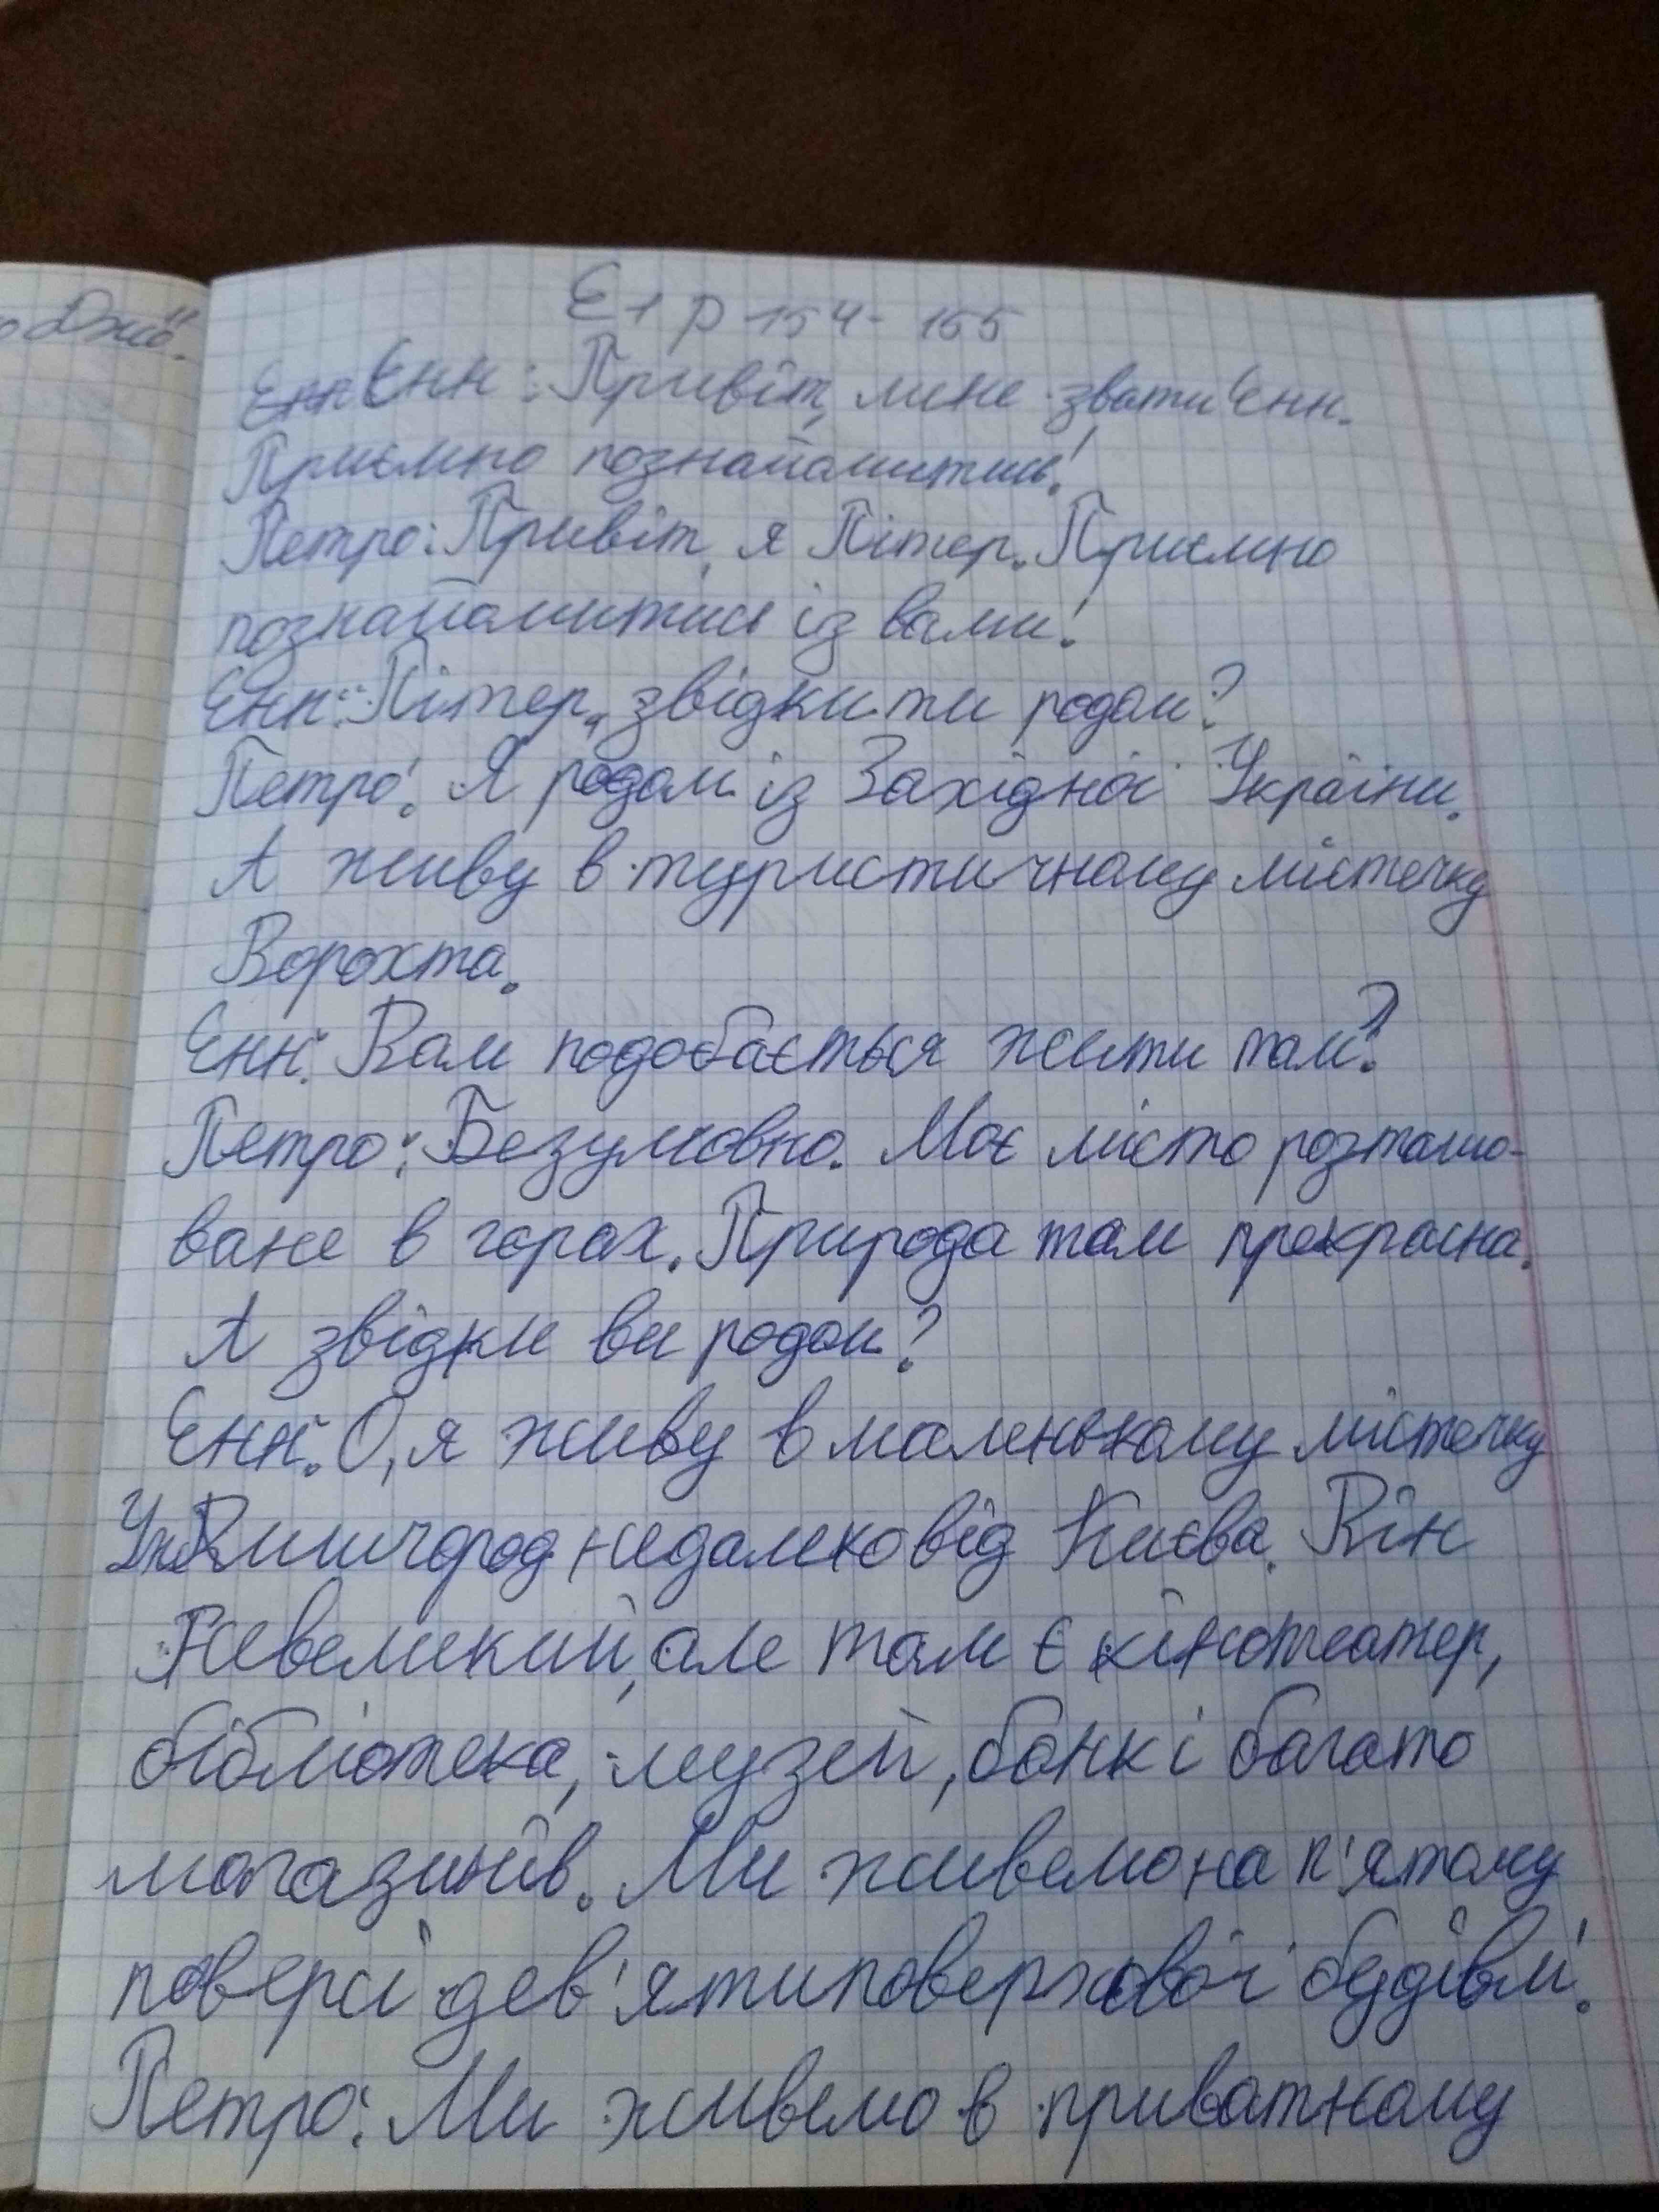 Е1 р 154-155
о Джо".
Енн Єнн: Привіт, мене звати Єнн.
Приємно познайомитись!
Петро: Привіт, я Пітер. Приємно
познайомитись із вами!
Єнн: Пітер, звідки ти родом?
Петро: Я родом із Західної України.
А живу в туристичному містечку
Ворохта.
Єнн: Вам подобається жити там?
Петро: Безумовно. Моє місто розташо-
ване в горах. Природа там прекрасна.
А звідки ви родом?
Єнн: О, я живу в маленькому містечку
Вишгород недалеко від Києва. Він
Невеликий, але там є кінотеатер,
бібліотека, музей, банк і багато
магазинів. Ми живемо на п'ятому
поверсі дев'ятиповерхової будівлі.
Петро: Ми живемо в приватному